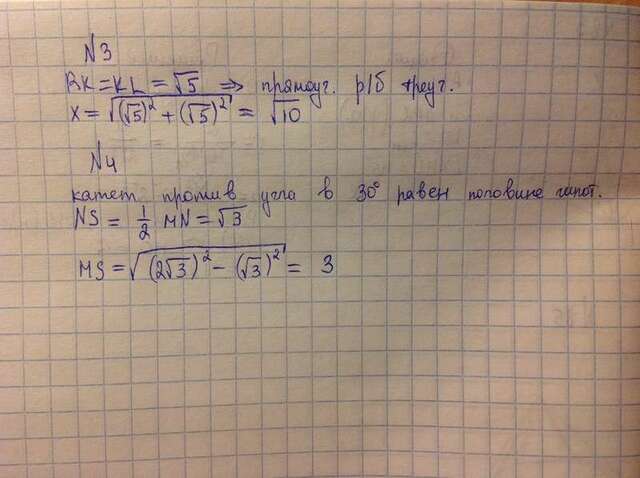 N3
BK=KL=√5 ⇒ прямоуг. р/б треуг.
X=√((√5)²+(√5)²)=√10
N4
катет против угла в 30° равен половине гипот.
NS=1/2 MN=√3
MS=√((2√3)²-(√3)²)=3